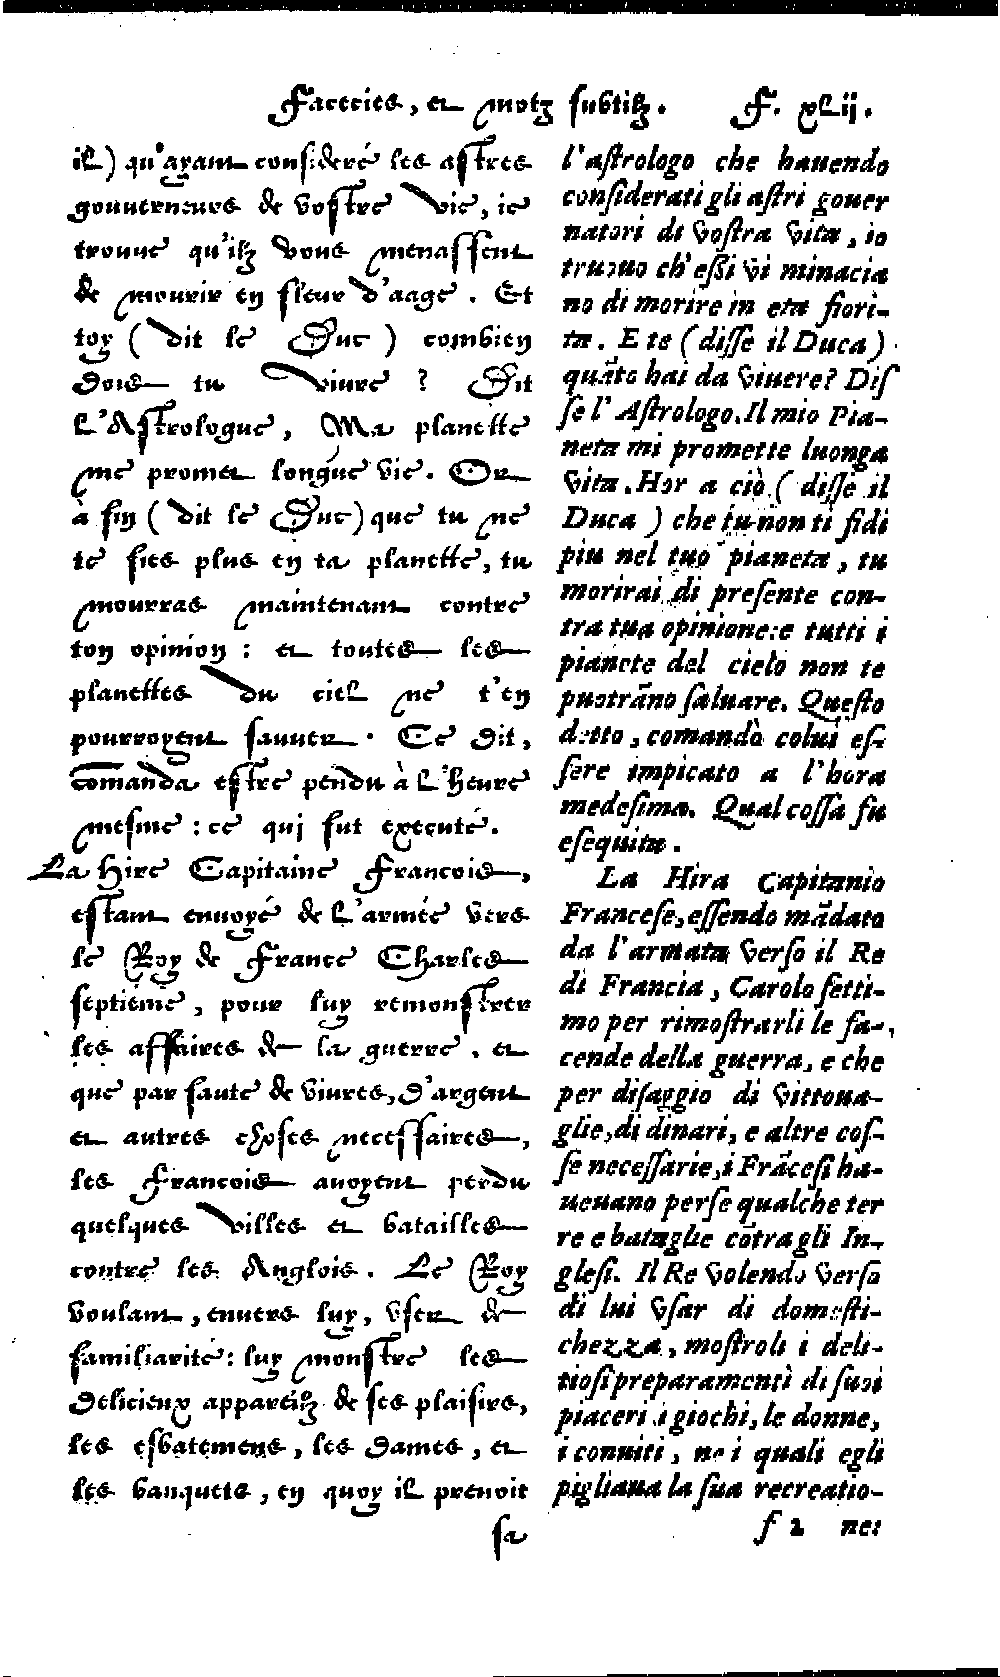 Facecies, et motz subtilz. F. xlij.
il) qu'ayant consideré les astres
gouverneurs de vostre vie, ie
trouue qu'ilz vous menassent
de mourir en fleur d'aage. Et
toy (dit le Duc) combien
dois tu viure ? Dit
l'Astrologue, Ma planette
me promet longue vie. Or
à fin (dit le Duc) que tu ne
te fies plus en ta planette, tu
mourras maintenant contre
ton opinion : et toutes les
planettes du ciel ne t'en
pourroyent sauuer. Ce dit,
comanda estre pendu à l'heure
mesme : ce qui fut executé.
La Hire Capitaine Francois,
estant enuoyé de l'armée vers
le Roy de France Charles
septiéme, pour luy remonstrer
les affaires de la guerre, et
que par faute de viures, d'argent
et autres choses necessaires,
les Francois auoyent perdu
quelques villes et batailles
contre les Anglois. Le Roy
voulant, enuers luy, vser de
familiarité: luy monstre les
delicieux appareilz de ses plaisirs,
les esbatemens, les dames, et
les banquets, en quoy il prenoit
sa
l'astrologo che hauendo
considerati gli astri gouer
natori di vostra vita, io
truouo ch'essi vi minacia
no di morire in eta fiori-
ta. E te (disse il Duca)
quãto hai da viuere? Dis
se l'Astrologo. Il mio Pia-
neta mi promette luonga
vita. Hor a ciò (disse il
Duca) che tu non ti fidi
piu nel tuo pianeta, tu
morirai di presente con-
tra tua opinione: e tutti i
pianete del cielo non te
puotrãno saluare. Questo
detto, comandò colui es-
sere impicato a l'hora
medesima. Qual cossa fu
esequita.
La Hira Capitanio
Francese, essendo mãdato
da l'armata verso il Re
di Francia, Carolo setti-
mo per rimostrarli le fa-
cende della guerra, e che
per disaggio di vittoua-
glie, di dinari, e altre cos-
se necessarie, i Frãcesi ha-
ueuano perse qualche ter
re e bataglie cõtra gli In-
glesi. Il Re volendo verso
di lui vsar di domesti-
chezza, mostroli i deli-
tiosi preparamenti di suoi
piaceri i giochi, le donne,
i conuiti, ne i quali egli
pigliaua la sua recreatio-
f 2 ne: